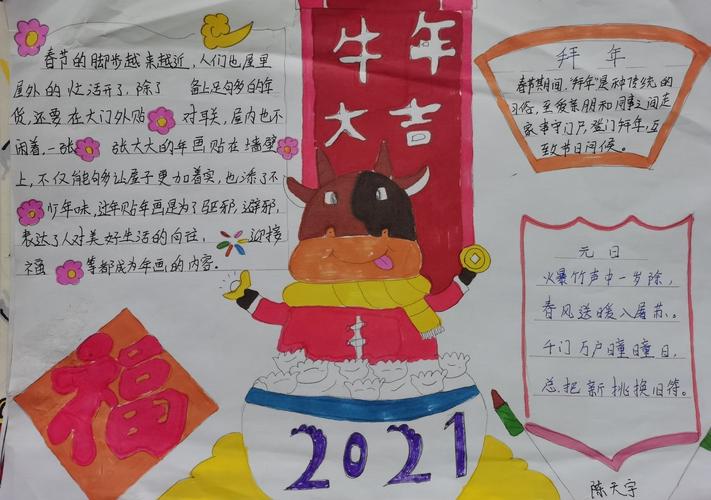 春节的脚步越来越近，人们也屋里
屋外的忙活开了，除了 备上足够多的年
货，还要在大门外贴 对联，屋内也不
闲着，一张 张大大的年画贴在墙壁
上，不仅能够让屋子更加着实，也添了不
少年味，这年贴年画是为了驱邪，避邪，
表达了人对美好生活的向往， 迎接
福 等都成为年画的内容。
牛年
大吉
拜年
春节期间，"拜年"是种传统的
习俗，至爱亲朋和同事之间走
家串守门户，登门拜年，互
致节日问候。
元日
火暴竹声中一岁除，
春风送暖入屠苏。
千门万户曈曈日，
总把新桃换旧符。
福
2021
陈天宇